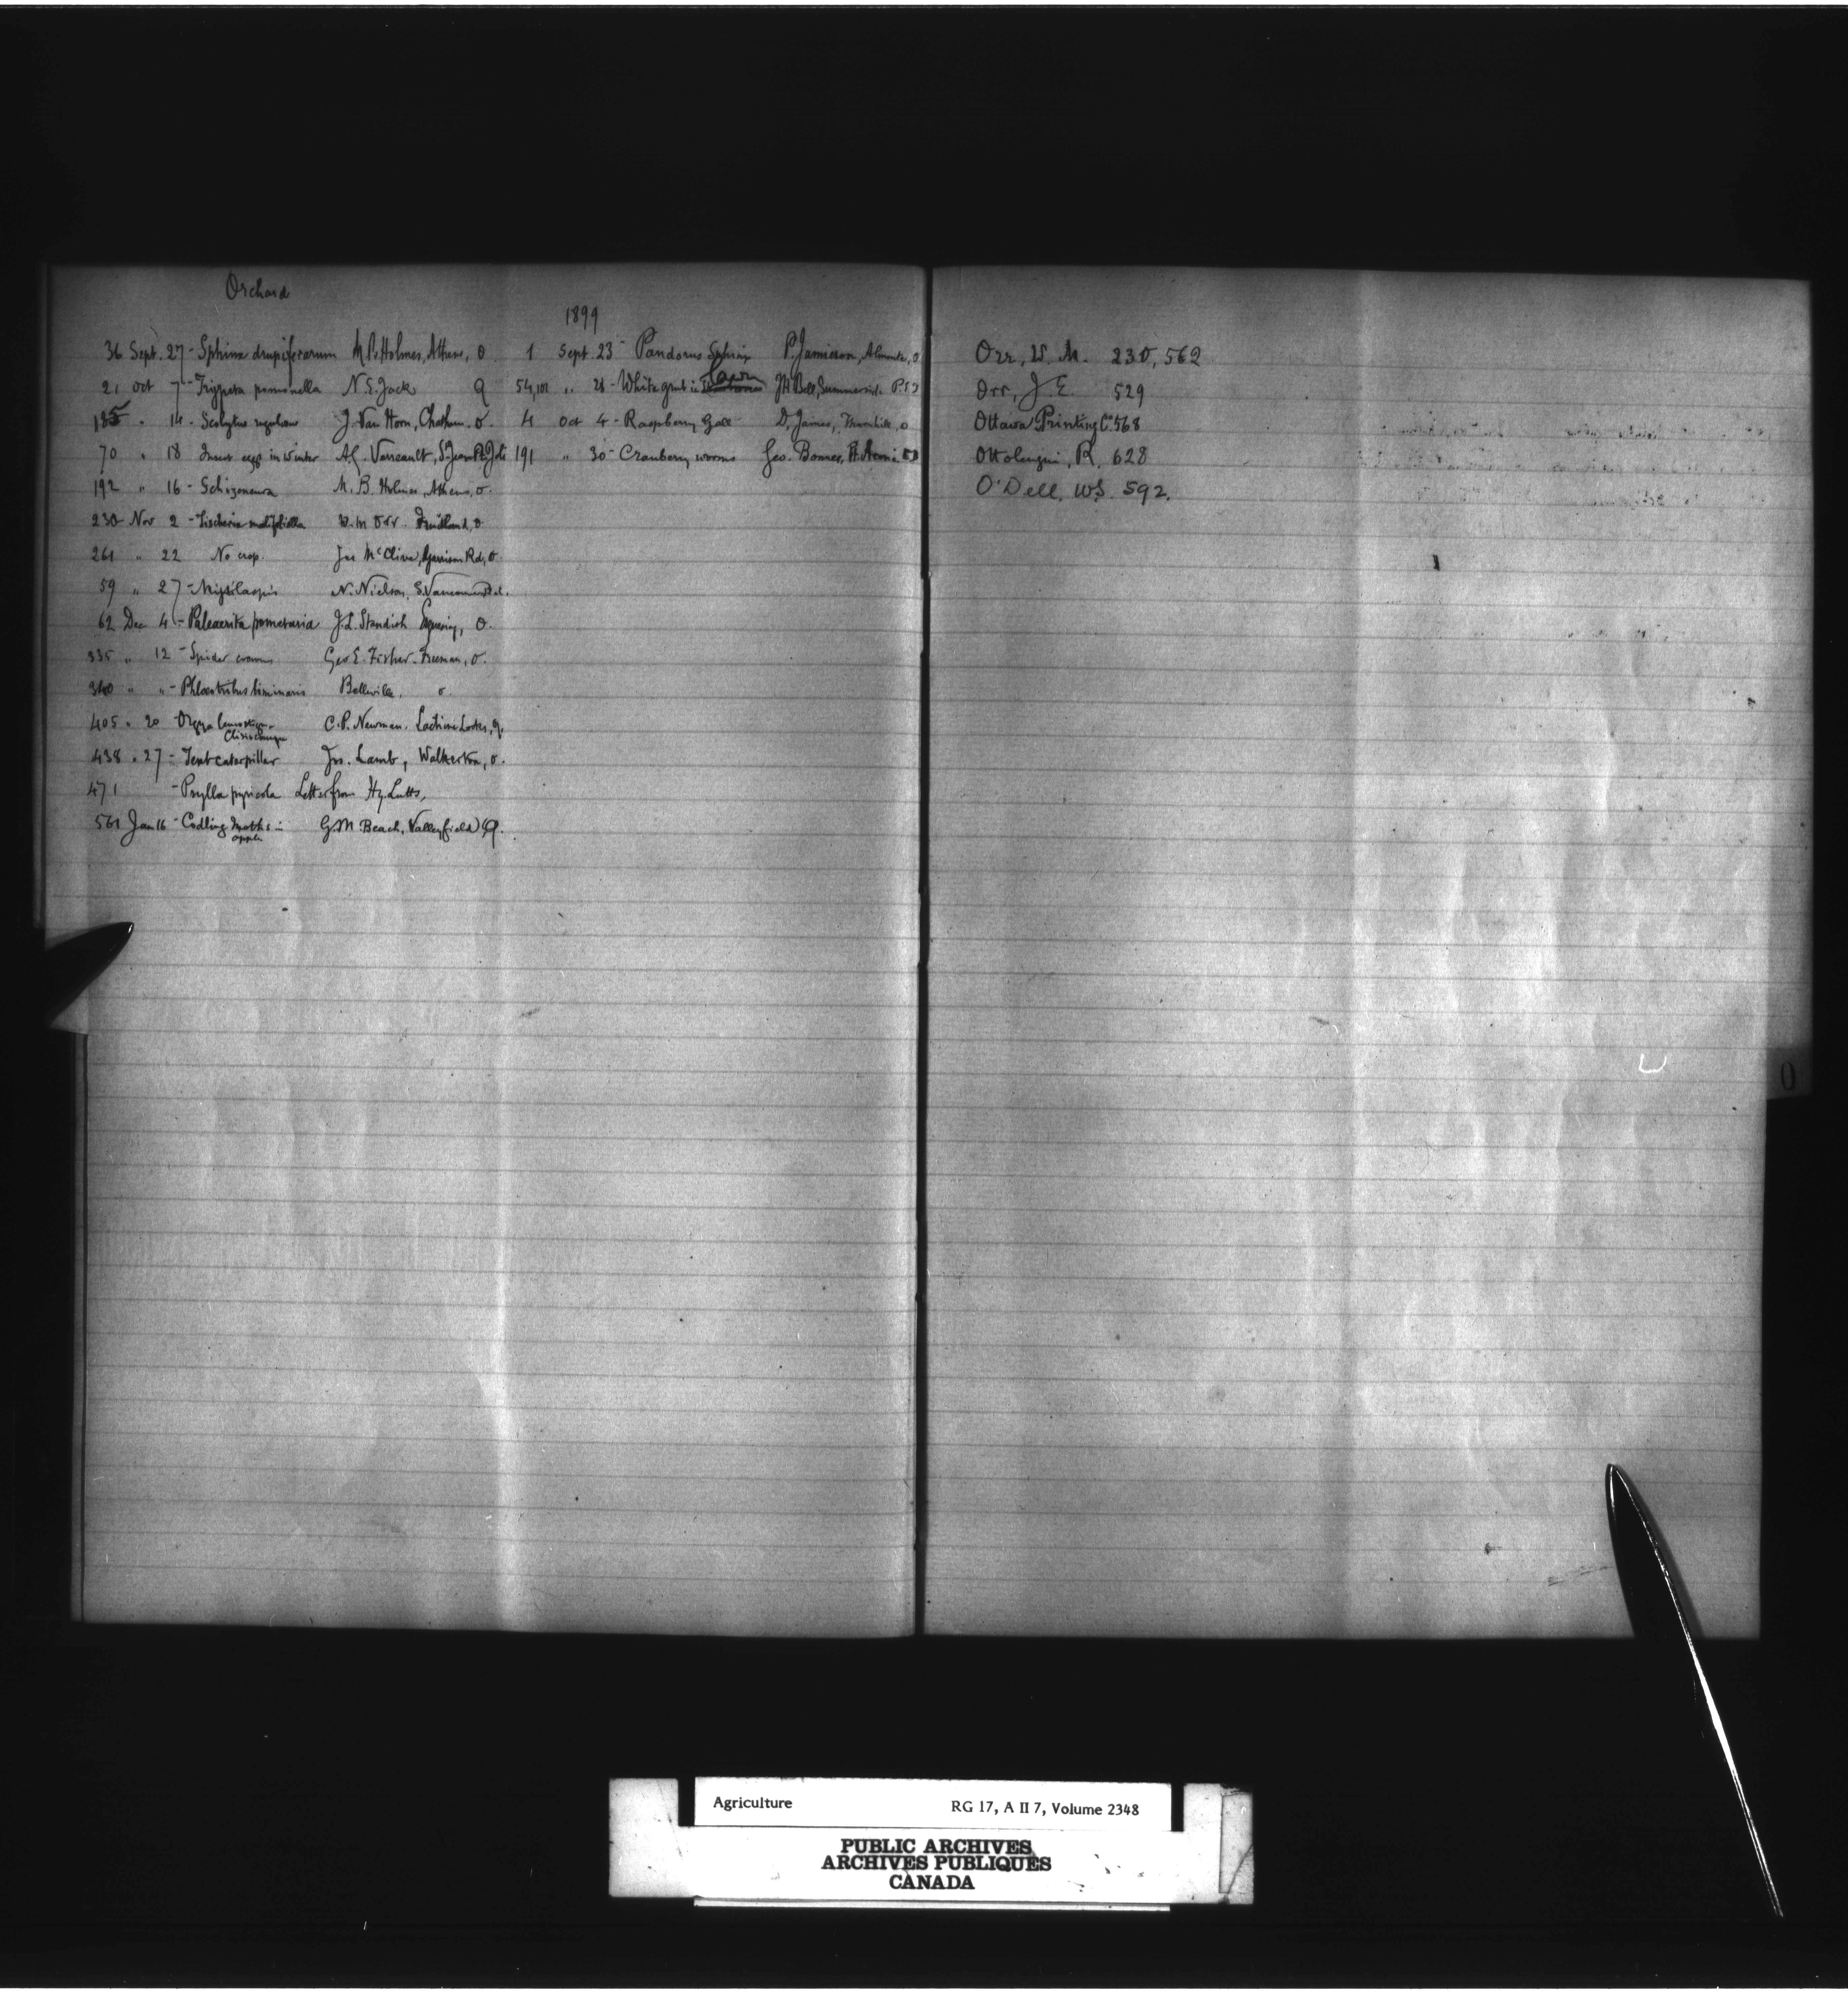 Orchard
36 Sept. 27 - Sphinx drupiferarum M.B. Holmes, Athens, O.
21 Oct 7 - Trypeta pomonella N.S. Jack Q
185 " 14 - Scolytus rugulosus J. Van Horn, Chatham. O.
70 " 18 Insect eggs in winter A.G. Verreault, St Jean Pt Joli
192 " 16 - Schizoneura M.B. Holmes, Athens, O.
230 Nov 2 - Tischeria malifoliella W.M Orr. Fruitland, O.
261 " 22 No crop. Jas McClive, Garrison Rd, O.
59 " 27 - Mytilaspis N. Nielson, S. Vancouver
62 Dec 4 - Paleacrita pometaria J.L. Standish O.
335 " 12 - Spider Geo E. Fisher. Freeman, O.
340 " " - Phloeotribus liminaris Belleville, O.
405 " 20 - Orgyia
Clisiocampa
C.P. Newman. Lachine Locks, Q.
438 " 27 - Tent caterpillar Jos. Lamb, Walkerton, O.
471 - Psylla pyricola Letter from Hy. Lutts,
561 Jan 16 - Codling Moths in
apples
G.M. Beach, Valleyfield Q.
1899
1 Sept. 23 - Pandorus Sphinx P. Jamieson, Almonte, O
54,101 " 28 - White grub in Lawn J H Bell, Summerside P.E.I
4 Oct 4 - Raspberry Gall D. James, Thornhill, O
191 " 30 - Cranberry worms Geo. Bonner,
Orr, W. M. 230, 562
Orr, J. E. 529
Ottawa Printing Co 568
Ottolengui, R. 628
O'Dell, W.S. 592.
O
Agriculture RG 17, A II 7, Volume 2348
PUBLIC ARCHIVES
ARCHIVES PUBLIQUES
CANADA